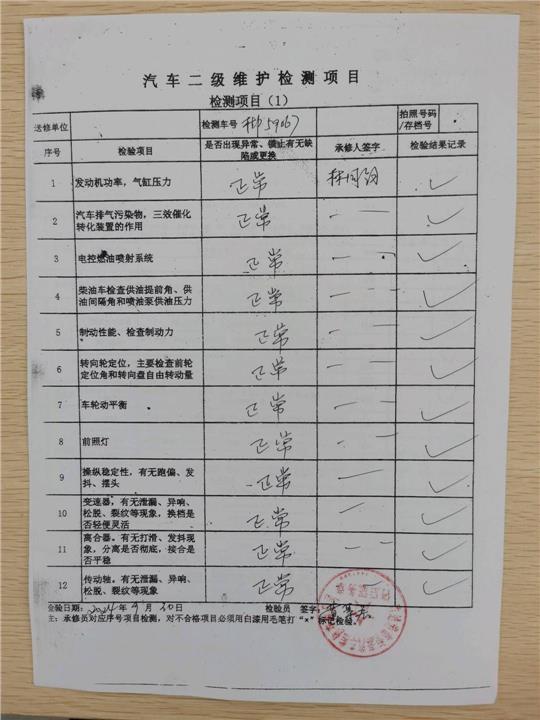 汽车二级维护检测项目
检测项目（1）
送修单位 检测车号 59067 拍照号码/存档号
序号 检验项目 是否出现异常、锁止有无缺陷或更换 承修人签字 检验结果记录
1 发动机功率，气缸压力 正常 ✓
2 汽车排气污染物，三效催化 正常 ✓
转化装置的作用
3 电控燃油喷射系统 正常 ✓
4 柴油车检查供油提前角、供 正常 ✓
油间隔角和喷油泵供油压力
5 制动性能、检查制动力 正常 ✓
6 转向轮定位，主要检查前轮 正常 ✓
定位角和转向盘自由转动量
7 车轮动平衡 正常 ✓
8 前照灯 正常 ✓
9 操纵稳定性，有无跑偏、发 正常 ✓
抖、摆头
10 变速器，有无泄漏、异响、 正常 ✓
松脱、裂纹等现象，换档是
否轻便灵活
11 离合器，有无打滑、发抖现 正常 ✓
象，分离是否彻底，接合是
否平稳
12 传动轴，有无泄漏、异响、 正常 ✓
松脱、裂纹等现象
检验日期：2024年9月20日 检验员 签字：
注：承修员对应序号项目检测，对不合格项目必须用白漆用毛笔打“×”标记检验。